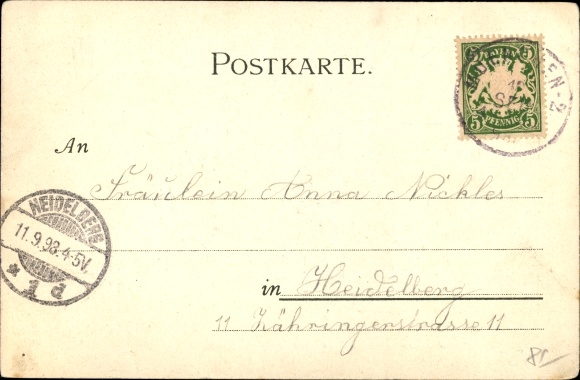 POSTKARTE.
BAYERN
5 5
5 PFENNIG 5
MÜNCHEN · 2
An
Fräulein Anna Nickles
HEIDELBERG
11.9.98.4-5V.
* 1 d
in Heidelberg
11 Zähringerstrasse 11